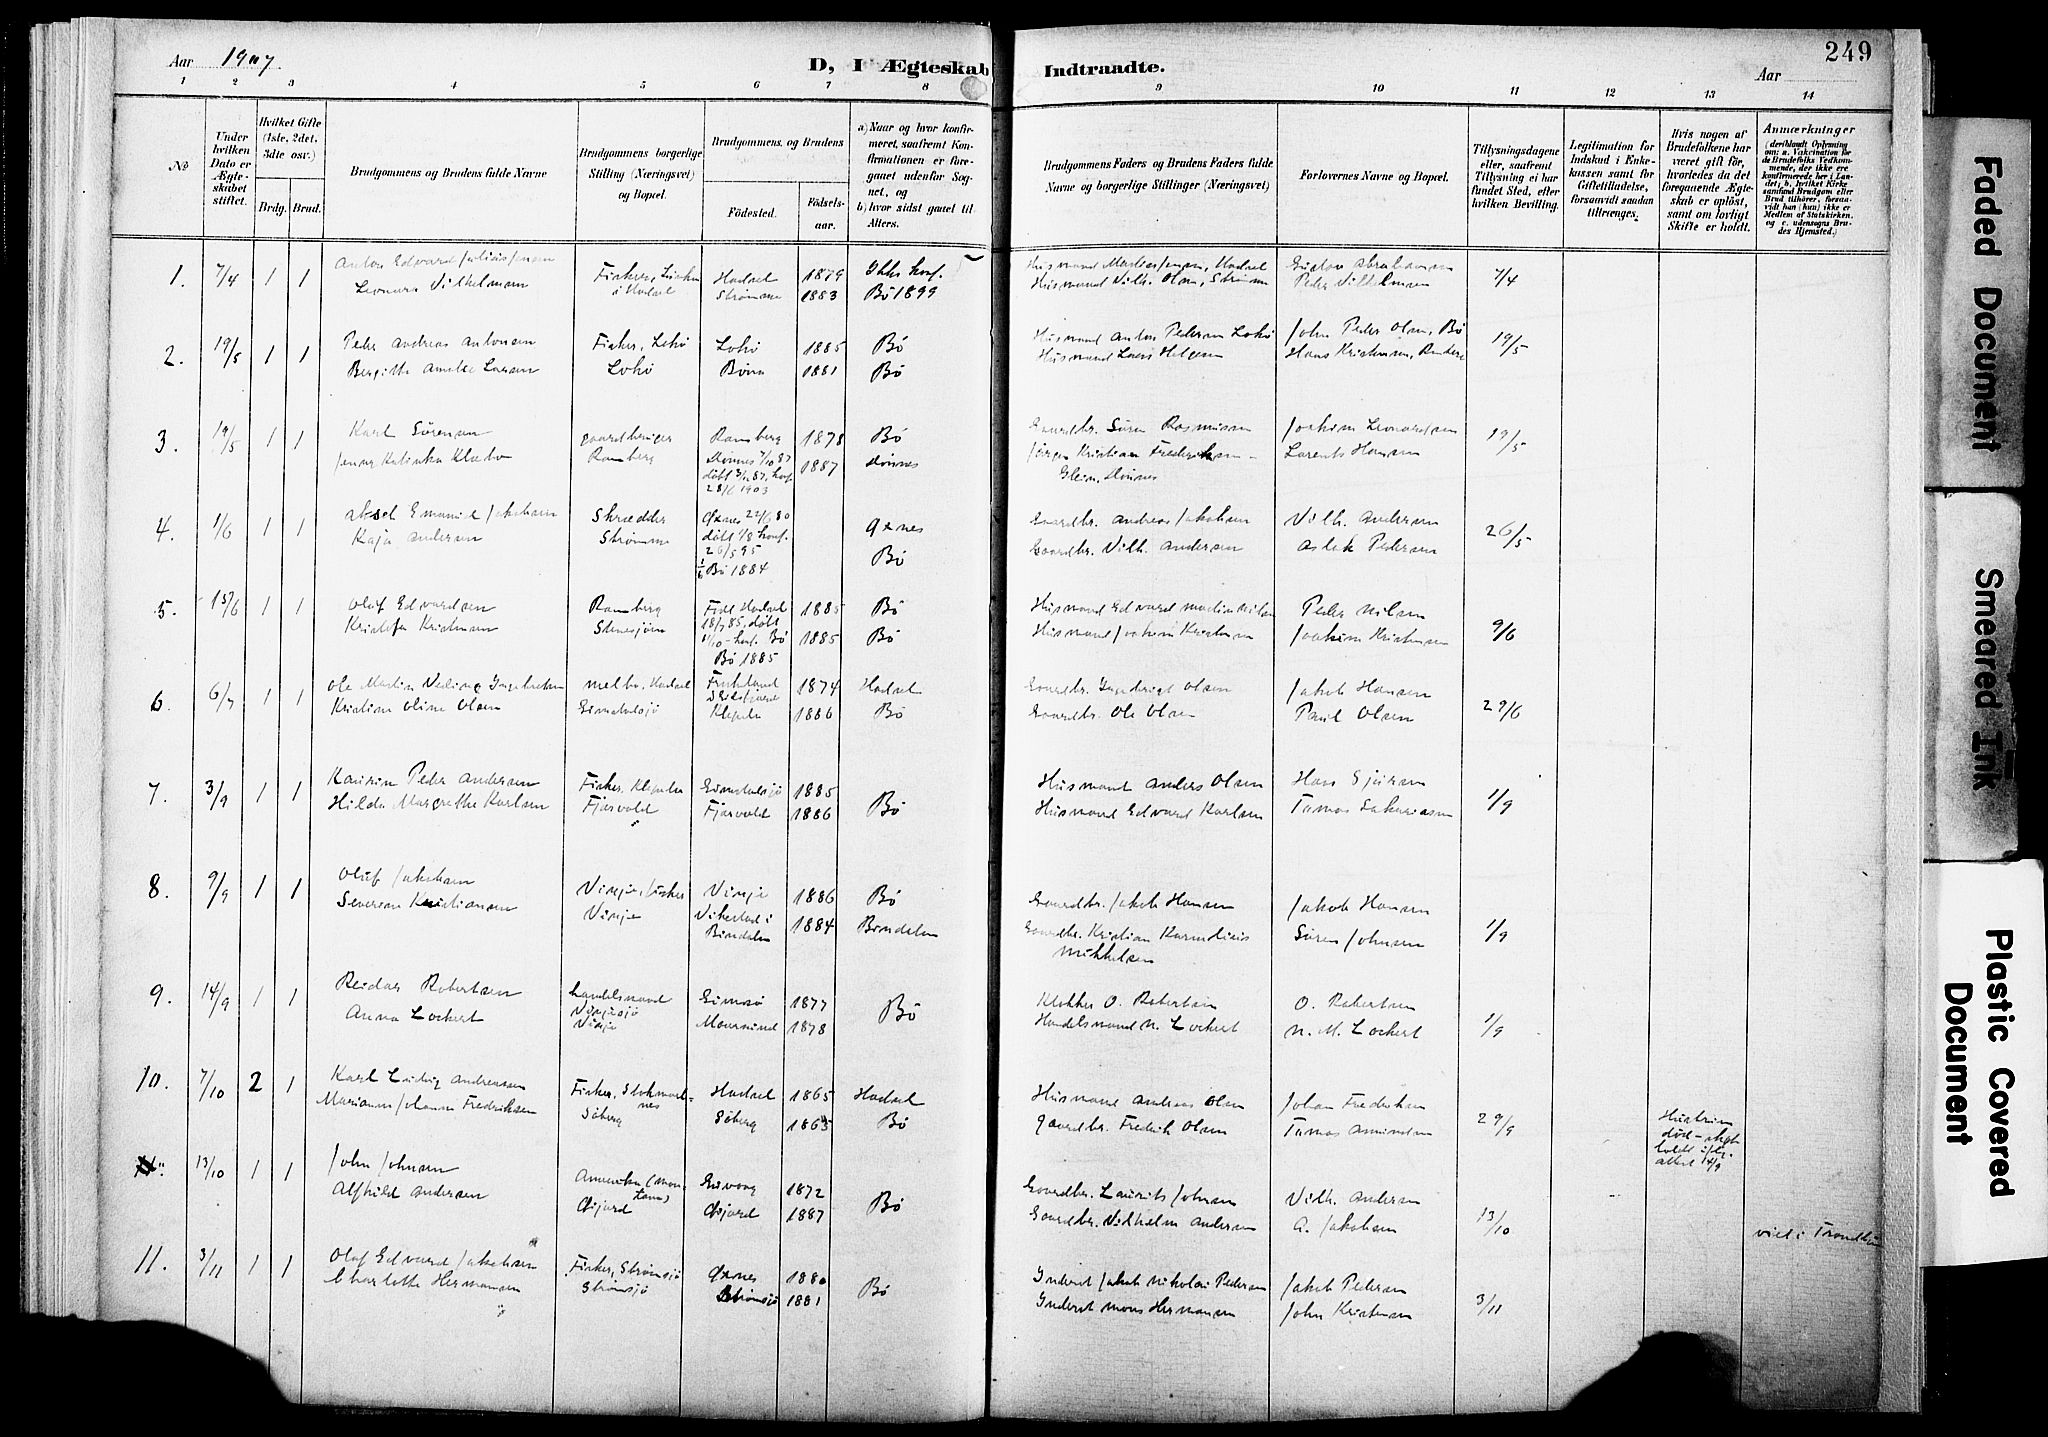 Aar 1907.
D, I Ægteskab
Indtraadte.
Aar
249
1 2 3 4 5 6 7 8 9 10 11 12 13 14
№
Under hvilken Dato er Ægteskabet stiftet.
Hvilket Gifte (1ste, 2det, 3die osv.)
Brdg. Brud.
Brudgommens og Brudens fulde Navne
Brudgommens borgerlige Stilling (Næringsvei) og Bopæl.
Brudgommens og Brudens
Födested.
Födselsaar.
a) Naar og hvor konfirmeret, saafremt Konfirmationen er foregaaet udenfor Sognet, og
b) hvor sidst gaaet til Alters.
Brudgommens Faders og Brudens Faders fulde Navne og borgerlige Stillinger (Næringsvei)
Forlovernes Navne og Bopæl.
Tillysningsdagene eller, saafremt Tillysning ei har fundet Sted, efter hvilken Bevilling.
Legitimation for Indskud i Enkekassen samt for Giftetilladelse, forsaavidt saadan tiltrænges.
Hvis nogen af Brudefolkene har været gift för, hvorledes da det foregaaende Ægteskab er oplöst, samt om lovligt Skifte er holdt.
Anmærkninger
(deriblandt Oplysning om: a. Vakcination for de Brudefolks Vedkommende, der ikke ere konfirmerede her i Landet; b. hvilket Kirkesamfund Brudgom eller Brud tilhörer, forsaavidt han (hun) ikke er Medlem af Statskirken. og c. udensogns Brudes Hjemsted.)
1. 7/4 1 1 Anton Edvard Julius Jensen Fisker, Hadsel 1879 Ikke konf. Husmand Jensen, Hadsel Gustav Abrahamsen 7/4
Leonora Vilhelmsen i Hadsel Strømme 1883 Bø 1899 Husmand Vilh. Olsen, Strømme Peder Vilhelmsen
2. 19/5 1 1 Peder Andreas Antonsen Fisker, Lokø Lokø 1885 Bø Husmand Anton Pedersen Lokø John Peder Olsen, Bø 19/5
Bergitte Amalie Larsen Lokø 1881 Bø Husmand Lars Helgesen Hans Kristensen,
3. 19/5 1 1 Karl Sørensen gaardbruger Ramberg 1878 Bø Gaardbr. Søren Rasmussen Joakim Leonardsen 19/5
Jenny Katinka Klæbo Ramberg Dønnes 7/10 87 1887 Dønnes Jørgen Kristian Frederiksen Lorents Hansen
døbt 3/12 87, konf. Glein, Dønnes
28/6 1903
4. 1/6 1 1 Aksel Emanuel Jakobsen Skrædder Øxnes 22/6 80 Øxnes Gaardbr. Andreas Jakobsen Vilh. Andersen 26/5
Kaja Andersen Strømme døbt 1/8 konf. Bø Gaardbr. Vilh. Andersen Aslak Pedersen
26/5 95
Bø 1884
5. 15/6 1 1 Olaf Edvardsen Ramberg Hadsel 1885 Bø Husmand Edvard Martin Nilsen Peder Nilsen 9/6
Kristofa Kristensen Stenesjøen 18/7 85, døbt 1885 Bø Husmand Joakim Kristensen Joakim Kristensen
11/10 - konf. Bø
Bø 1885
6. 6/7 1 1 Ole Martin Vedine Ingebrektsen Melbo, Hadsel 1874 Hadsel Gaardbr. Ingebrigt Olsen Jakob Hansen 29/6
Kristine Oline Olsen Eimstadsjø Klepeln 1886 Bø Gaardbr. Ole Olsen Paul Olsen
7. 3/9 1 1 Kaurin Peder Andersen Fisker, Klepeln Eimstadsjø 1885 Bø Husmand Anders Olsen Hans Sjursen 1/9
Hilda Margrethe Karlsen Fjærvold Fjærvold 1886 Husmand Edvard Karlsen Tomas Sakariassen
8. 9/9 1 1 Oluf Jakobsen Vinje, Fisker Vinje 1886 Bø Gaardbr. Jakob Hansen Jakob Hansen 1/9
Severine Kristiansen Vinje Vikestad i Bindalen 1884 Bindalen Gaardbr. Kristian Kornelius Mikkelsen Søren Johnsen
9. 14/9 1 1 Reidar Robertsen handelsmand Vinjesjø Eimesø 1877 Bø Klokker O. Robertsen O. Robertsen 1/9
Anna Lockert Vinje Maursund 1878 Handelsmand N. Lockert N. M. Lockert
10. 7/10 2 1 Karl Ludvig Andreassen Fisker, Stokmarknes Hadsel 1865 Hadsel Husmand Andreas Olsen Johan Fredriksen 29/9
Marianne Johanna Fredriksen Søberg Søberg 1865 Bø gaardbr. Fredrik Olsen Tomas Amundsen Hustruen død -
11. 13/10 1 1 John Johnsen Amerika (Montana) 1872 Bø Gaardbr. Laurits Johnsen Vilh. Andersen 13/10
Alfhild Andersen Gjærd Gjærd 1887 Gaardbr. Vilhelm Andersen A. Jakobsen viet i Trondhjem
11. 3/11 1 1 Olaf Edvard Jakobsen Fisker, Strømsjø Øxnes 1880 Bø Inderst Jakob Nikolai Pedersen Jakob Pedersen 3/11
Charlotte Hermansen Strømsjø Strømsjø 1881 Inderst Mons Hermansen John Kristensen
Faded Document
Smeared Ink
Plastic Covered Document